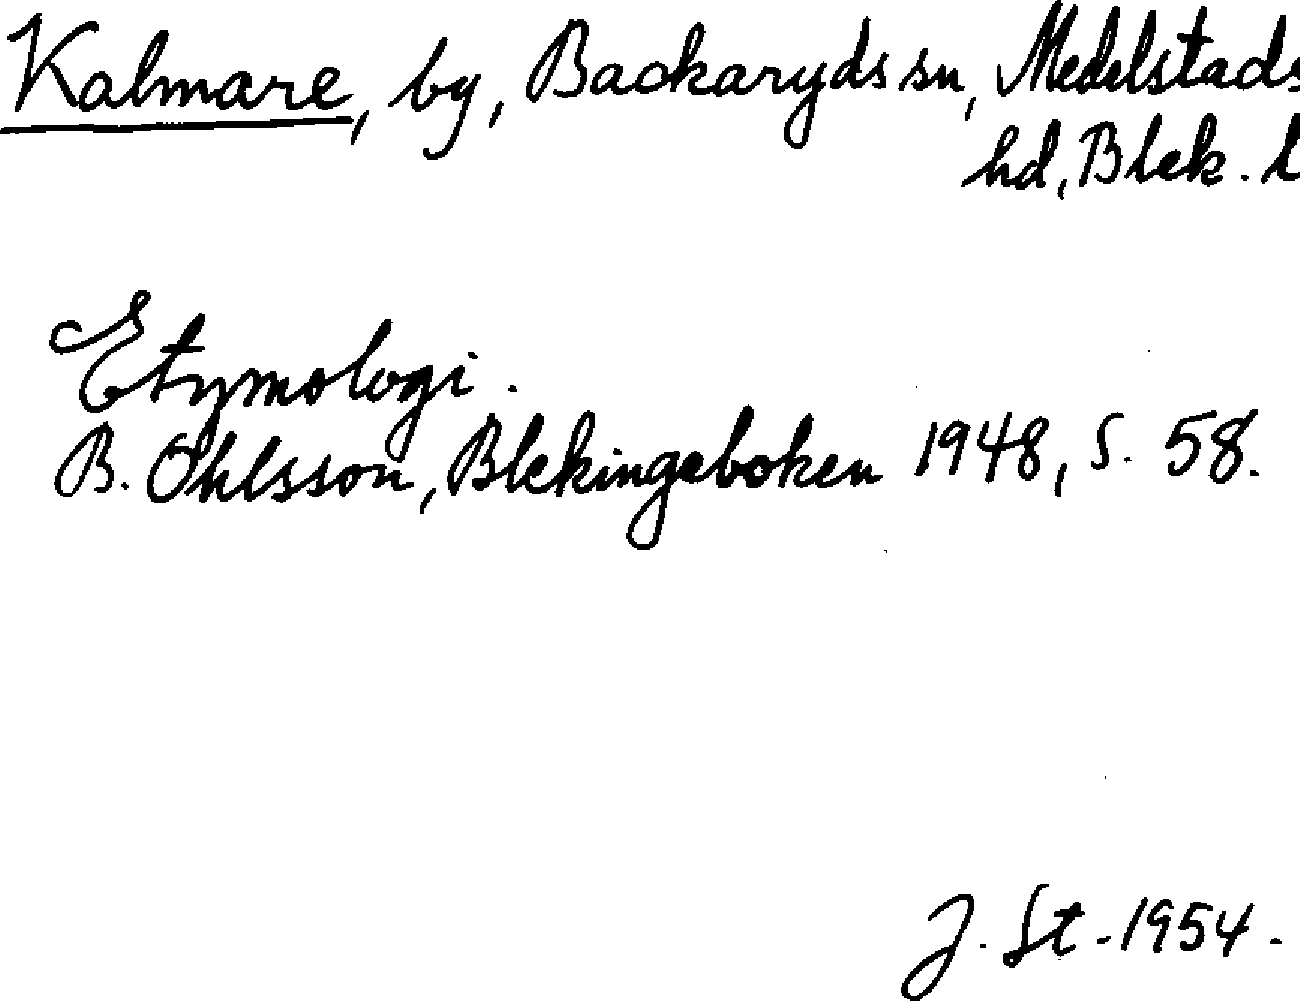 Kalmare, by, Backaryds sn, Medelstads
hd, Blek. l
Etymologi.
B. Ohlsson, Blekingeboken 1948, S. 58.
J. St. 1954.